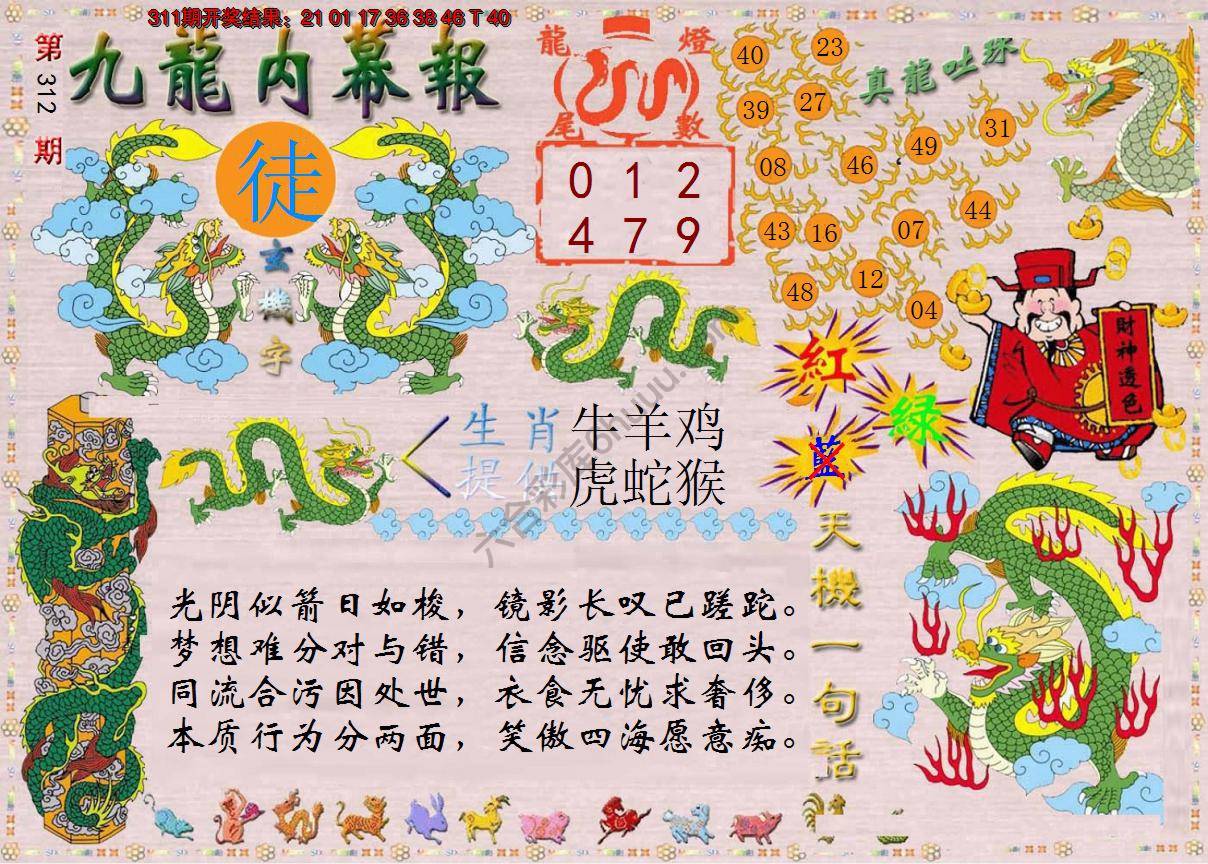 311期开奖结果：21 01 17 36 38 46 T 40
第312期
九龍内幕報
徒
玄機字
龍燈
尾數
0 1 2
4 7 9
真龍吐珠
40 23
39 27
49 31
08 46
44
43 16 07
12
48 04
財神透色
紅
綠
藍
生肖 牛羊鸡
提供 虎蛇猴
六合彩库
天機一句話
光阴似箭日如梭，镜影长叹已蹉跎。
梦想难分对与错，信念驱使敢回头。
同流合污因处世，衣食无忧求奢侈。
本质行为分两面，笑傲四海愿意痴。